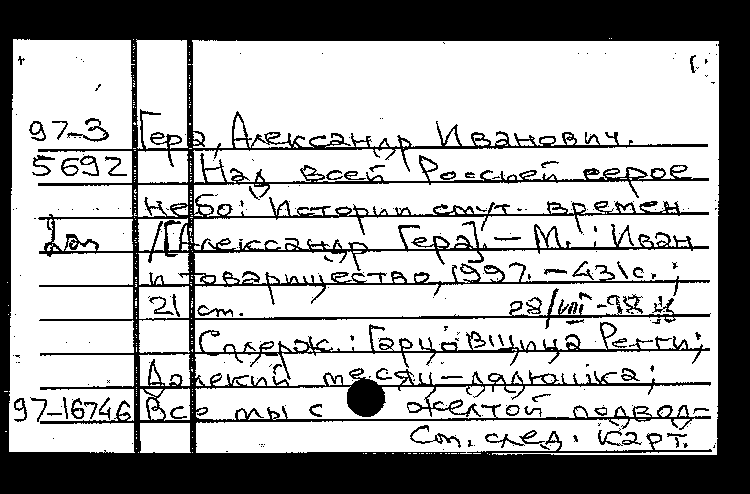 97-3 Гера, Александр Иванович.
5692 Над всей Россией серое
небо: Истории смут. времен
/[Александр Гера]. – М.: Иван
и товарищество, 1997. – 431с.;
21 см. 28/VIII-98
Содерж.: Гарцовщица Регги;
Далекий месяц-дядюшка;
97-16746 Все мы с желтой подвод-
См. след. карт.